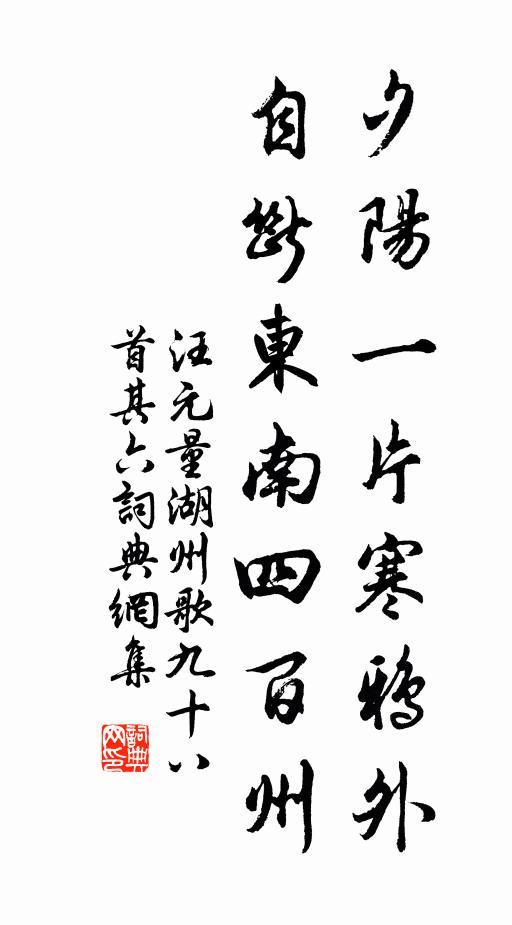 夕陽一片寒鴉外
自斷東南四百州
汪元量湖州歌九十八
首其六詞典網集
詞典
网印